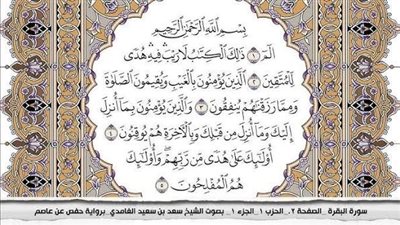 بِسْمِ اللَّهِ الرَّحْمَٰنِ الرَّحِيمِ
الٓمٓ ١ ذَٰلِكَ الْكِتَٰبُ لَا رَيْبَ فِيهِ هُدًى
لِّلْمُتَّقِينَ ٢ الَّذِينَ يُؤْمِنُونَ بِالْغَيْبِ وَيُقِيمُونَ الصَّلَوٰةَ
وَمِمَّا رَزَقْنَٰهُمْ يُنفِقُونَ ٣ وَالَّذِينَ يُؤْمِنُونَ بِمَا أُنزِلَ
إِلَيْكَ وَمَا أُنزِلَ مِن قَبْلِكَ وَبِالْآخِرَةِ هُمْ يُوقِنُونَ ٤
أُولَٰئِكَ عَلَىٰ هُدًى مِّن رَّبِّهِمْ وَأُولَٰئِكَ
هُمُ الْمُفْلِحُونَ ٥
سورة البقرة_ الصفحة ٢_ الحزب ١_ الجزء ١_ بصوت الشيخ سعد بن سعيد الغامدي_ برواية حفص عن عاصم